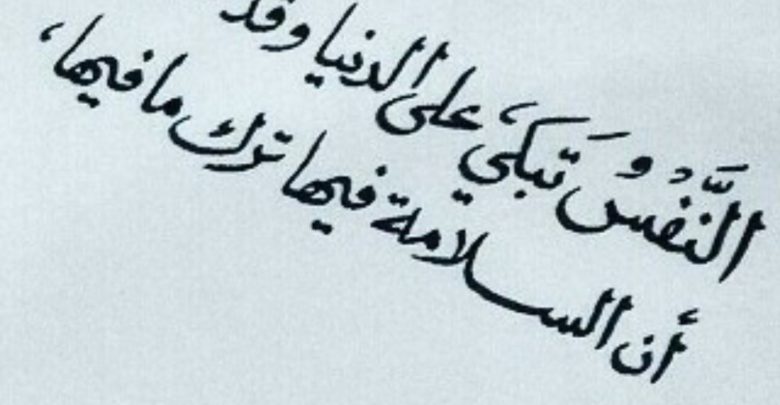 النَّفْسُ تَبكي على الدنيا وقد
أن السلامة فيها ترك ما فيها،